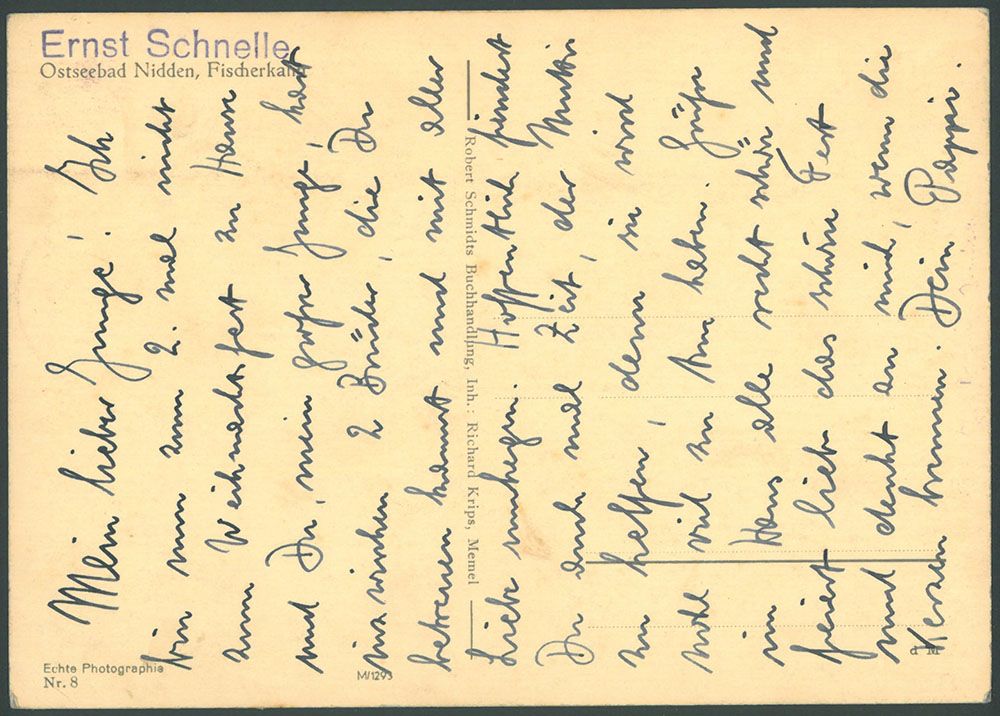 Ernst Schnelle
Ostseebad Nidden, Fischerkaten
Mein lieber Junge! Ich
bin nun zum 2. mal nicht
zum Weihnachtsfest zu Hause
und Du, mein großer Junge, hast
inzwischen 2 Brüder, die Du
betreuen kannst und mit aller
Liebe umhegen. Hoffentlich findest
Du auch mal Zeit, der Mutti
zu helfen, denn sie wird
wohl viel zu tun haben. Grüße
im Haus alle recht schön und
feiert lieb das schöne Fest
und denkt an mich, wenn die
Kerzen brennen. Dein Pappi.
Robert Schmidts Buchhandlung, Inh.: Richard Krips, Memel
Echte Photographie
Nr. 8
M/1293
d M